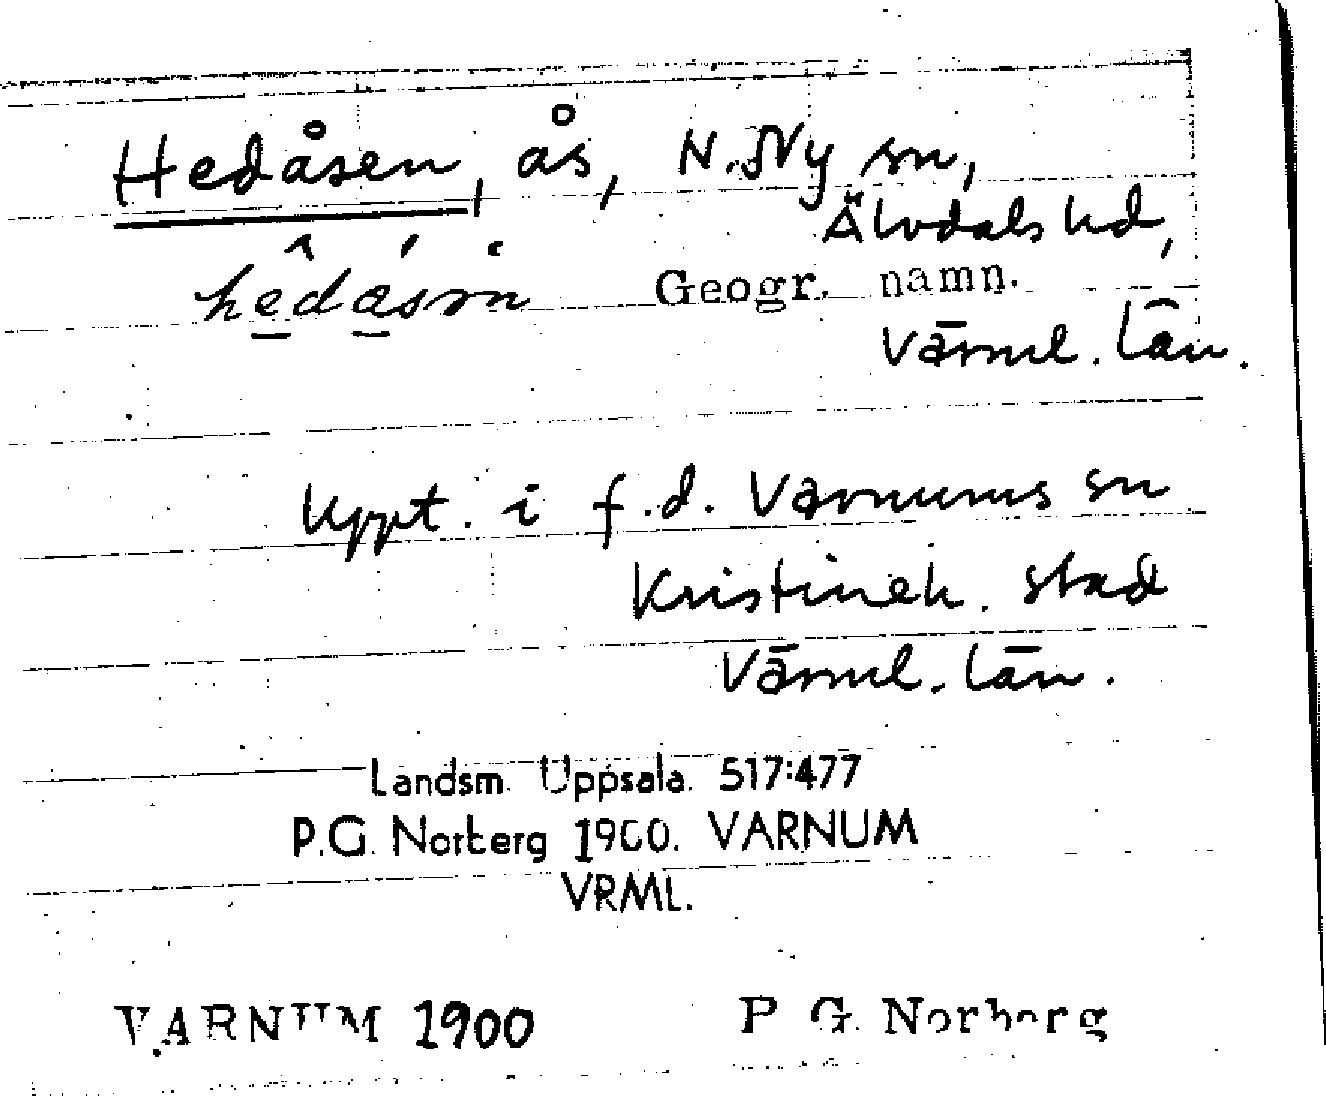 Hedåsen, ås, N. Ny sn,
Älvdals hd,
hedåsn Geogr. namn.
Värml. län.
Uppt. i f.d. Varnums sn
Kristineh. stad
Värml. län.
Landsm. Uppsala. 517:477
P.G. Norberg 1900. VARNUM
VRML.
VARNUM 1900 P G Norberg